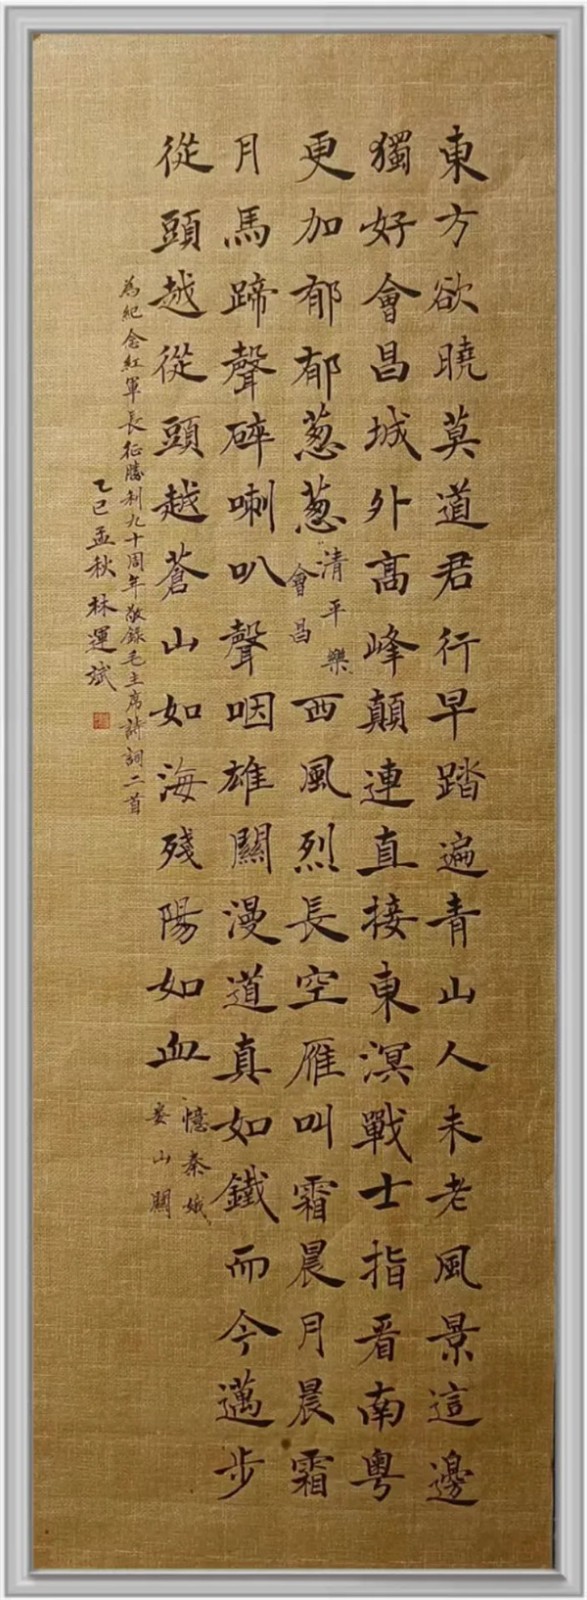 東方欲曉莫道君行早踏遍青山人未老風景這邊
獨好會昌城外高峰顛連直接東溟戰士指看南粵
更加郁郁葱葱
清平樂
會昌
西風烈長空雁叫霜晨月晨霜
月馬蹄聲碎喇叭聲咽雄關漫道真如鐵而今邁步
從頭越從頭越蒼山如海殘陽如血
憶秦娥
婁山關
為紀念紅軍長征勝利九十周年敬錄毛主席詩詞二首
乙巳孟秋林運斌